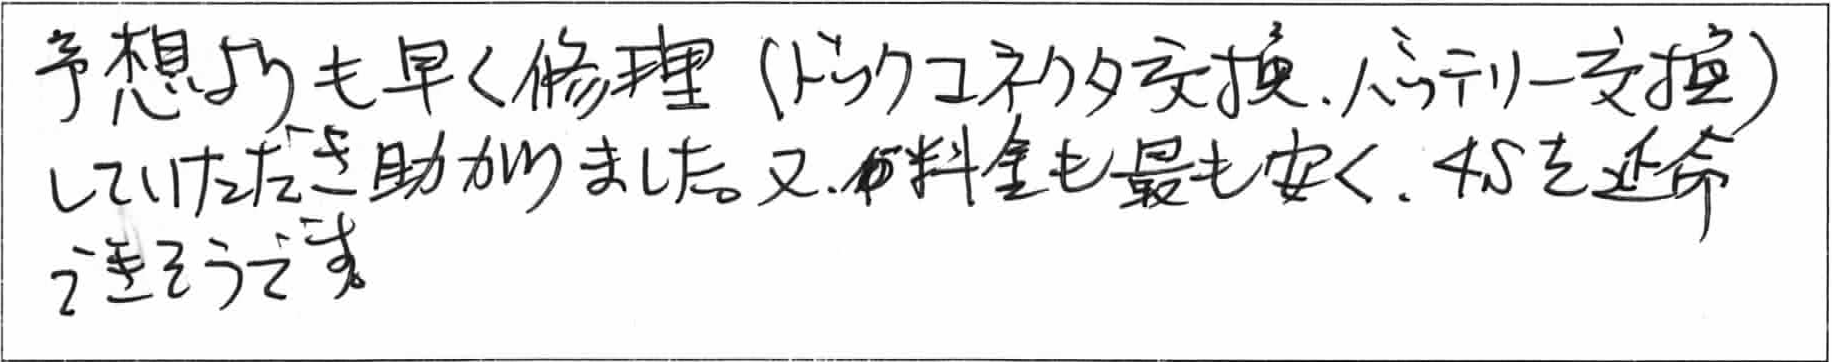 予想よりも早く修理(ドックコネクタ交換、バッテリー交換)
していただき助かりました。又、料金も最も安く、4Sを延命
できそうです。